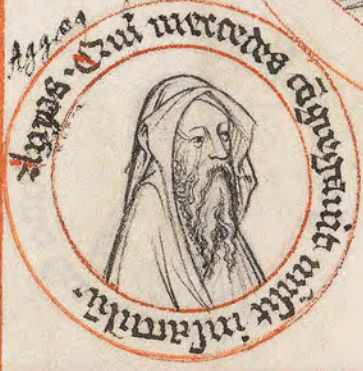 Aggeus · Qui mercedes cōgregauit misit in saculū·